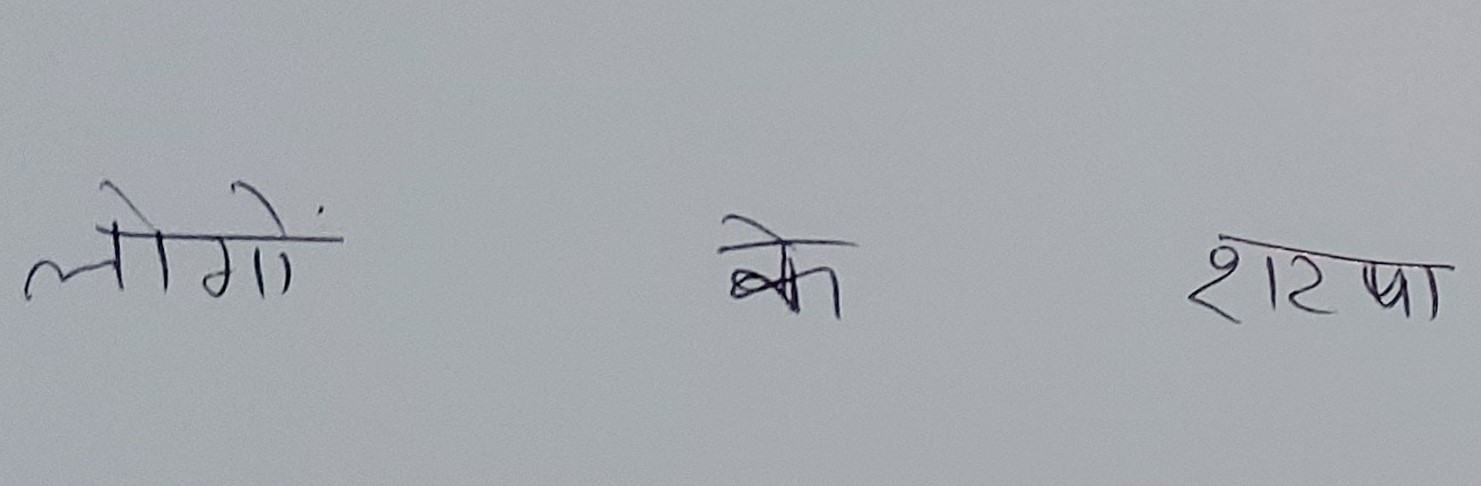 लोगों के शारपा